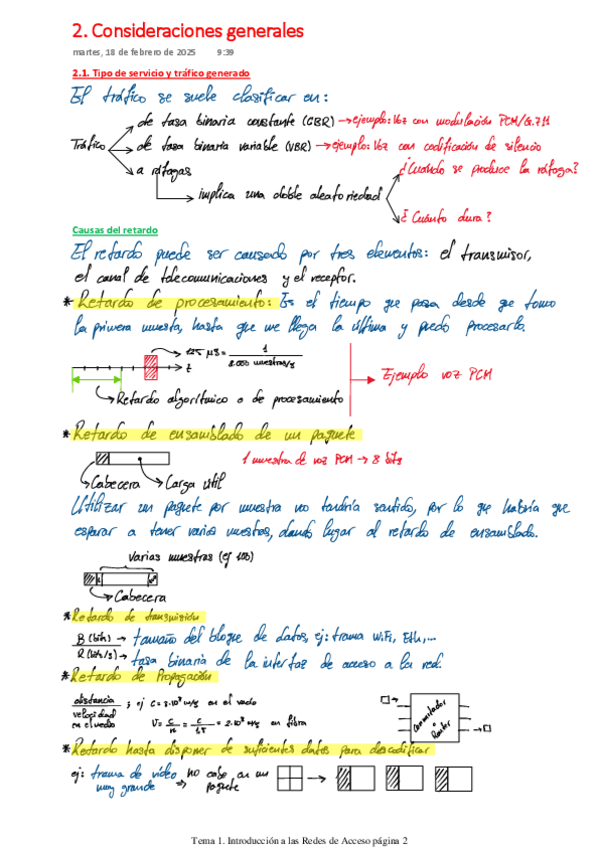 2. Consideraciones generales
martes, 18 de febrero de 2025 9:39
2.1. Tipo de servicio y tráfico generado
El tráfico se suele clasificar en:
de tasa binaria constante (CBR) → ejemplo: Voz con modulación PCM/G.711
Tráfico de tasa binaria variable (VBR) → ejemplo: Voz con codificación de silencio
a ráfagas
¿Cuándo se produce la ráfaga?
implica una doble aleatoriedad
¿Cuánto dura?
Causas del retardo
El retardo puede ser causado por tres elementos: el transmisor,
el canal de telecomunicaciones y el receptor.
* Retardo de procesamiento: Es el tiempo que pasa desde que tomo
la primera muestra, hasta que me llega la última y puedo procesarla.
125 μs = 1 / 8.000 muestras/s
t
Ejemplo voz PCM
Retardo algorítmico o de procesamiento
* Retardo de ensamblado de un paquete
1 muestra de voz PCM → 8 bits
Cabecera Carga útil
Utilizar un paquete por muestra no tendría sentido, por lo que habría que
esperar a tener varias muestras, dando lugar al retardo de ensamblado.
Varias muestras (ej 100)
Cabecera
* Retardo de transmisión
B (bits) → tamaño del bloque de datos, ej: trama WiFi, Eth,...
R (bits/s) → tasa binaria de la interfaz de acceso a la red.
* Retardo de Propagación
distancia / velocidad en el medio ; ej c = 3·10⁸ m/s en el vacío
V = c/n = c/1,5 = 2·10⁸ m/s en fibra
Conmutador o Router
* Retardo hasta disponer de suficientes datos para descodificar
ej: trama de vídeo muy grande ⇒ no cabe en un paquete
Tema 1. Introducción a las Redes de Acceso página 2